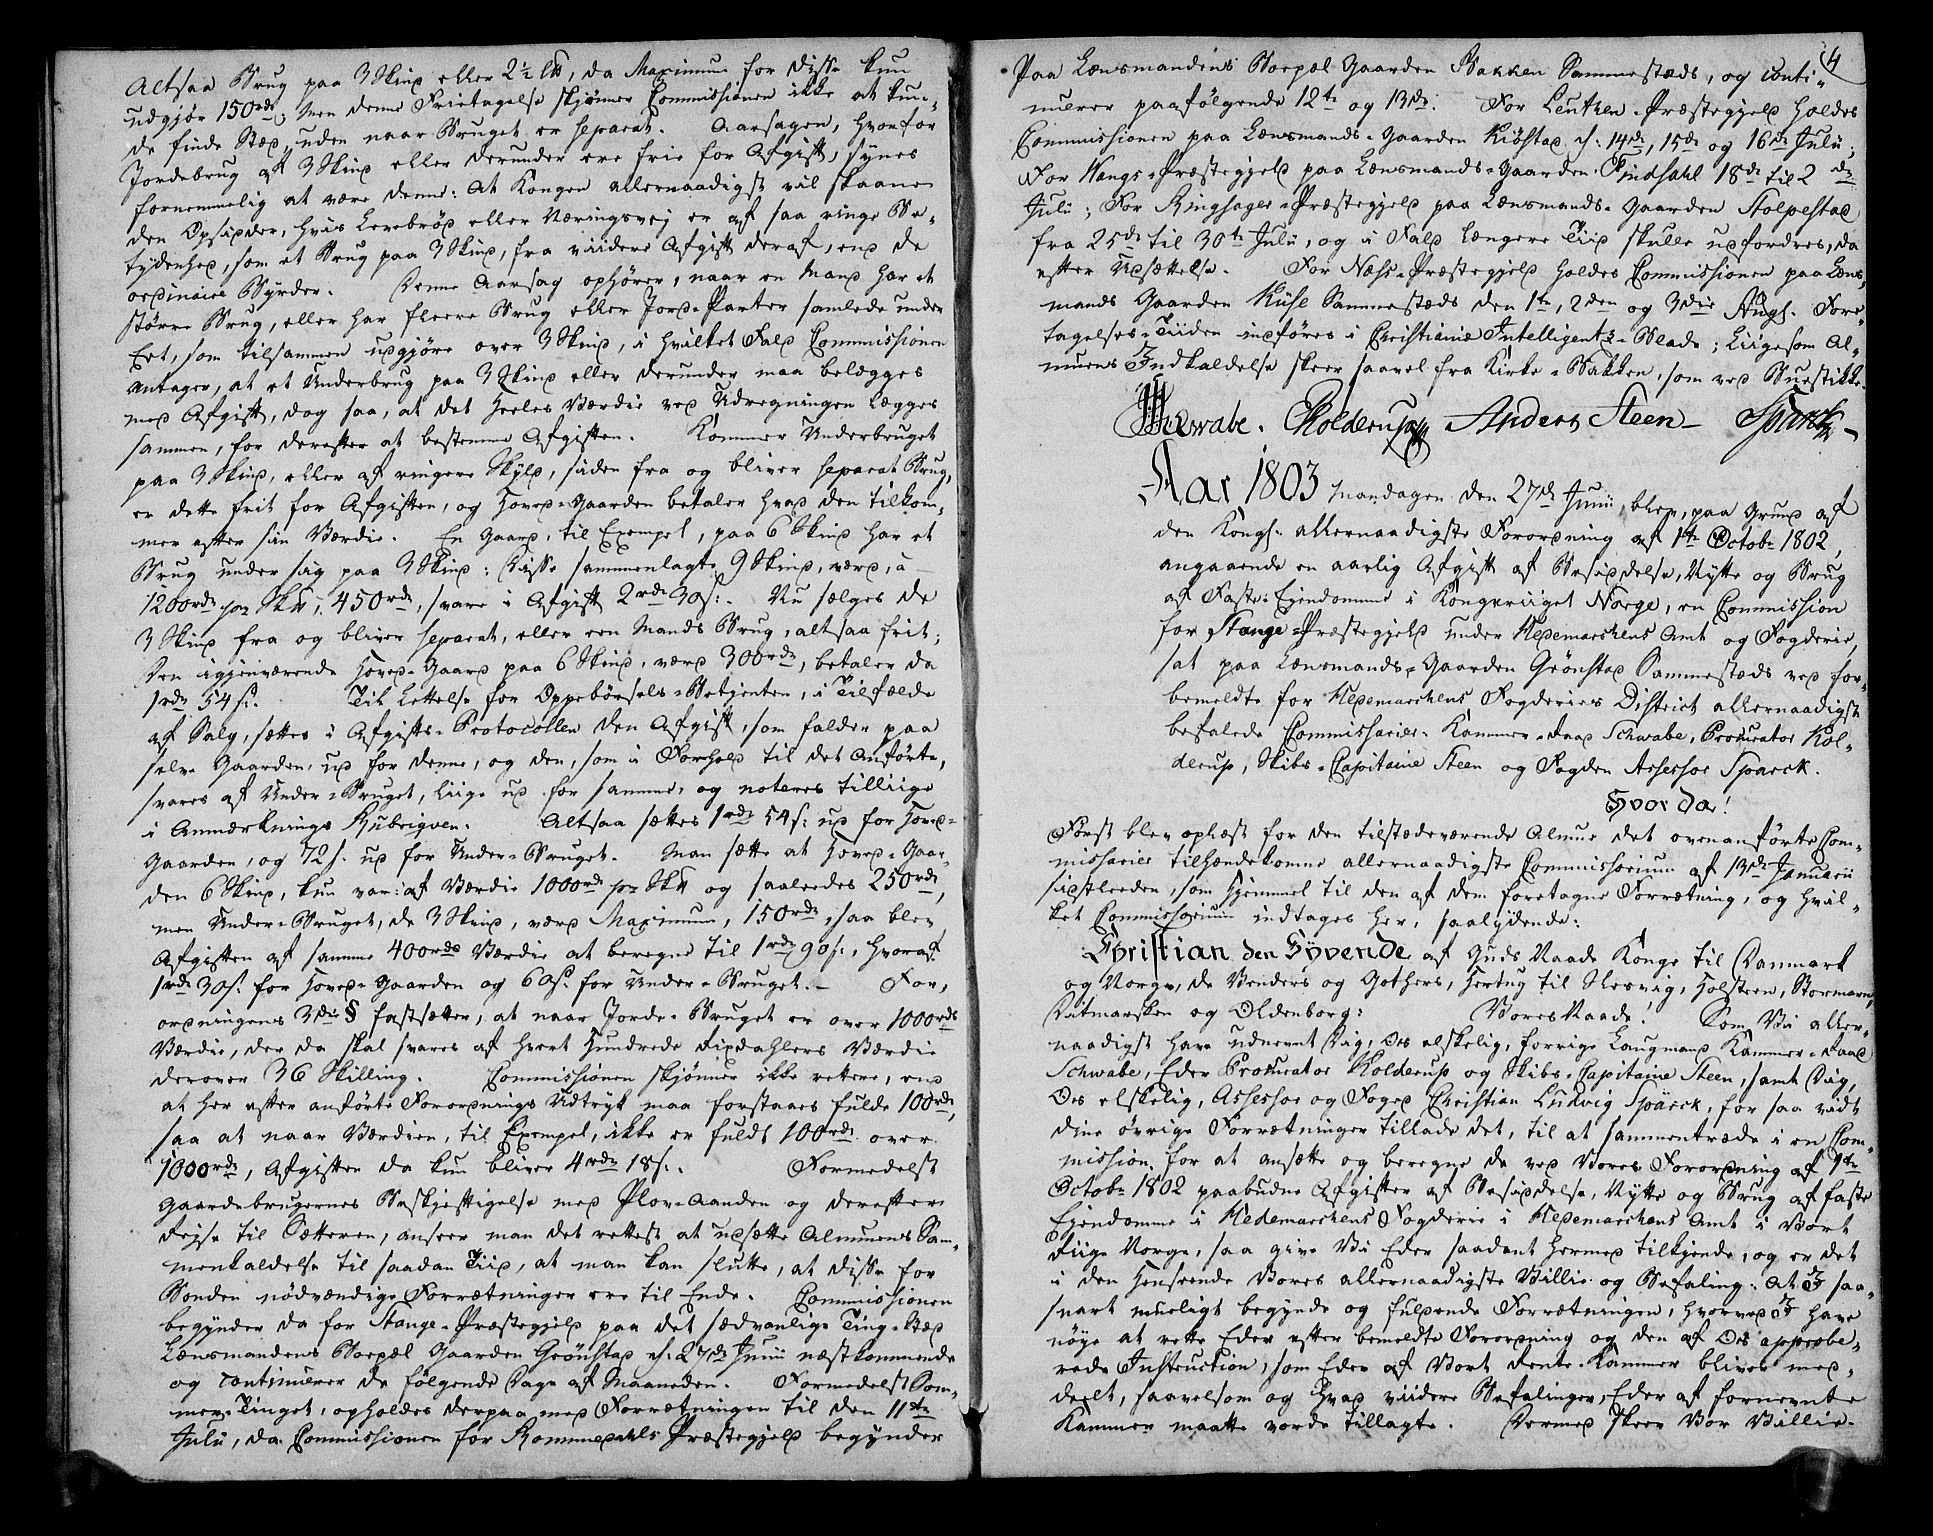 Altsaa Brug paa 3 Skind eller 2½ lb, da Maximum for disse kun
udgjör 150rdr. Men denne Fritagelse skjønner Commissionen ikke at kun-
de finde Sted, uden naar Bruget er separat. Aarsagen, hvorfor
Jordebrug af 3 Skind eller derunder ere frie for Afgift, synes
fornemmelig at være denne: at Kongen allernaadigst vil skaane
den Opsidder, hvis Levebröd eller Næringsvej er af saa ringe Be-
tydenhed, som et Brug paa 3 Skind, fra viidere Afgift deraf, end de
ordinaire Byrder. Denne Aarsag ophører, naar en Mand har et
större Brug, eller har fleere Brug eller Jord-Parter samlede under
Eet, som tilsammen udgjöre over 3 Skind, i hvilket Fald Commissionen
antager, at et Underbrug paa 3 Skind eller derunder maa belægges
med Afgift, dog saa, at det heeles Værdie ved Udregningen lægges
sammen, for derefter at bestemme Afgiften. Kommer Underbruget
paa 3 Skind, eller af ringere Skyld, siden fra og bliver separat Brug,
er dette frit for Afgiften, og Hoved-Gaarden betaler hvad den tilkom-
mer efter sin Værdie. En Gaard, til Exempel, paa 6 Skind har et
Brug under sig paa 3 Skind: disse sammenlagte 9 Skind, værd, a
1200rdr pr Skd, 450rdr, svare i Afgift 2rdr 30s. Nu sælges de
3 Skind fra og bliver separat, eller een Mands Brug, altsaa frit;
den igjenværende Hoved-Gaard paa 6 Skind, værd 300rdr, betaler da
1rdr 54s. Til Lettelse for Oppebörsels-Betjenten, i Tilfælde
af Salg, sættes i Afgifts-Protocollen den Afgift, som falder paa
selve Gaarden, ud for denne, og den, som i Forhold til det Anførte,
svares af Under-Bruget, liige ud for samme, og noteres tilliige
i Anmærknings Rubriqven. Altsaa sættes 1rdr 54s. ud for Hoved-
Gaarden, og 72s. ud for Under-Bruget. Man sætte at Hoved-Gaar-
den 6 Skind, kun var af Værdie 1000rdr pr Skd og saaledes 250rdr,
men Under-Bruget, de 3 Skind, værd Maximum, 150rdr, saa blev
Afgiften af samme 400rdrs Værdie at beregne til 1rdr 90s., hvoraf
1rdr 30s. for Hoved-Gaarden og 60s. for Under-Bruget. For,
ordningens 3die § fastsætter, at naar Jorde-Bruget er over 1000rdrs
Værdie, der da skal svares af hvert Hundrede Rixdahlers Værdie
derover 36 Skilling. Commissionen skjønner ikke rettere, end
at her efter anførte Forordnings Udtryk maa forstaaes fulde 100rdr,
saa at naar Værdien, til Exempel, ikke er fuldt 100rdr over
1000rdr, Afgiften da kun bliver 4rdr 18s. Formedelst
Gaardebrugernes Beskjeftigelse med Plov-Aanden og derefter
Rejse til Sætteren, anseer man det rettest at udsætte Almuens Sam-
menkaldelse til saadan Tiid, at man kan slutte, at disse for
Bonden nödvændige Forrætninger ere til Ende. Commissionen
begynder da for Stange-Præstegjeld paa det sædvanlige Ting-Sted
Lænsmandens Bopæl Gaarden Grönstad d: 27de Junii næstkommende
og continuerer de følgende Dage af Maaneden. Formedelst Som-
mer-Tinget, opholdes derpaa med Forrætningen til den 11te
Julii, da Commissionen for Rommedahls Præstegjeld begynder
4
Paa Lænsmandens Boepæl Gaarden Bakken Sammesteds, og conti-
nuerer paafølgende 12te og 13de. For Leuthen-Præstegjeld holdes
Commissionen paa Lænsmands-Gaarden Kiöstad d: 14de, 15de og 16de Julii;
For Vangs-Præstegjeld paa Lænsmands-Gaarden Findsahl 18de til 2 de
Julii; For Ringsager-Præstegjeld paa Lænsmands-Gaarden Stolpestad
fra 25de til 30te Julii, og i Fald længere Tiid skulle udfordres, da
efter Udsættelse. For Næss-Præstegjeld holdes Commissionen paa Læns,
mands Gaarden Kiise Sammesteds den 1te, 2den og 3die Augs. Fore-
tagelses-Tiiden indføres i Christiania Intelligentz-Blade; Liigesom Al-
muens Indkaldelse skeer saavel fra Kirke-Bakken, som ved Buestikke.
Schwabe. Kolderup Anders Steen Sparck
Aar 1803 Mandagen den 27de Junii, blev, paa Grund af
den Kongl. allernaadigste Forordning af 1te Octobr 1802,
angaaende en aarlig Afgift af Besiddelse, Nytte og Brug
af Faste-Ejendomme i Kongeriiget Norge, en Commission
for Stange-Præstegjeld under Hedemarchens Amt og Fogderie,
sat paa Lænsmands-Gaarden Grönstad Sammesteds ved for-
bemeldte for Hedemarchens Fogderies District allernaadigst
befalede Commissarier: Kammer-Raad Schwabe, Procurator Kol-
derup, Skibs-Capitaine Steen og Fogden Assessor Sparck.
Hvor da!
Først blev oplæst for den tilstædeværende Almue det ovenanførte Com-
missarier tilhændekomne allernaadigste Commissorium af 13de Januarii
sidstleeden, som Hjemmel til den af dem foretagne Forrætning, og hvil-
ket Commissorium indtages her, saalydende:
Christian den Syvende af Guds Naade Konge til Danmark
og Norge, de Venders og Gothers, Hertug til Slesvig, Holsteen, Stormarn,
Ditmarsken og Oldenborg: Vores Naade! Som Vii aller-
naadigst have udnevnt Dig, Os elskelig, forrige Laugmand Kammer-Raad
Schwabe, Eder Procurator Kolderup og Skibs-Capitaine Steen, samt Dig,
Os elskelig, Assessor og Foged Christian Ludvig Spärck, for saa vidt
dine övrige Forrætninger tillade det, til at sammentræde i en Com-
mission, for at ansætte og beregne de ved Vores Forordning af 1te
Octobr 1802 paabudne Afgifter af Besiddelse, Nytte og Brug af faste
Ejendomme i Hedemarchens Fogderie i Hedemarchens Amt i Vort
Riige Norge, saa give Vii Eder saadant hermed tilkjende, og er det
i den Henseende Vores allernaadigste Villie og Befaling: At I saa-
snart mueligt begynde og fuldende Forrætningen, hvorved I have
nöye at rette Eder efter bemeldte Forordning og den af Os approbe-
rede Instruction, som Eder af Vort Rente-Kammer bliver med-
deelt, saavelsom og hvad viidere Befalinger, Eder af fornevnte
Kammer maatte vorde tillagte. Dermed skeer Vor Villie.